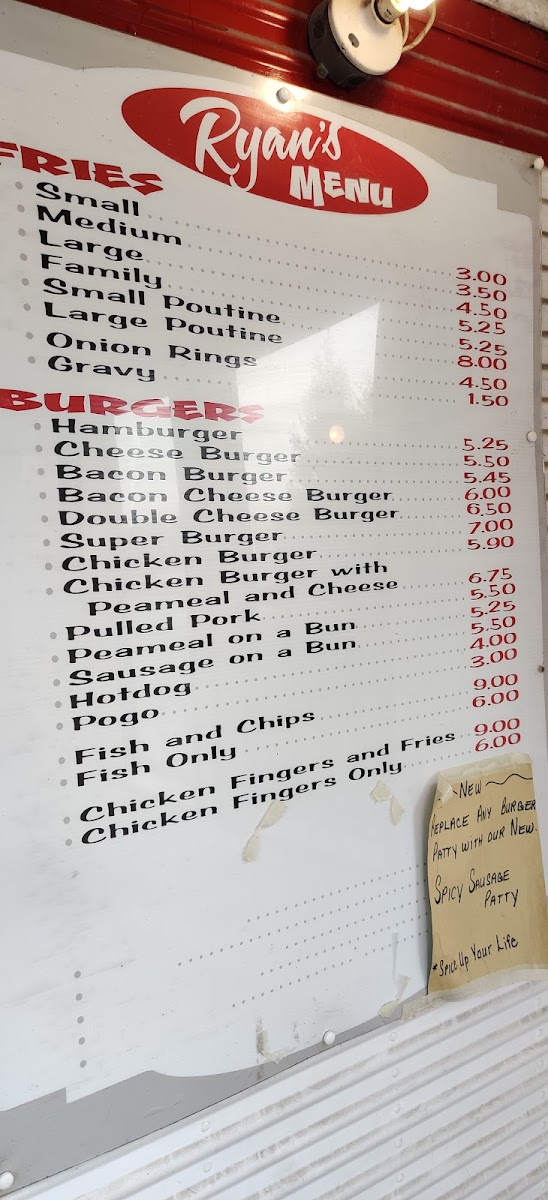 Ryan's
MENU
FRIES
Small 3.00
Medium 3.50
Large 4.50
Family 5.25
Small Poutine 5.25
Large Poutine 8.00
Onion Rings 4.50
Gravy 1.50
BURGERS
Hamburger 5.25
Cheese Burger 5.50
Bacon Burger 5.45
Bacon Cheese Burger 6.00
Double Cheese Burger 6.50
Super Burger 7.00
Chicken Burger 5.90
Chicken Burger with
Peameal and Cheese 6.75
Pulled Pork 5.50
Peameal on a Bun 5.25
Sausage on a Bun 5.50
Hotdog 4.00
Pogo 3.00
Fish and Chips 9.00
Fish Only 6.00
Chicken Fingers and Fries 9.00
Chicken Fingers Only 6.00
~NEW~
REPLACE ANY BURGER
PATTY WITH OUR NEW.
SPICY SAUSAGE
PATTY
*SPICE UP YOUR LIFE